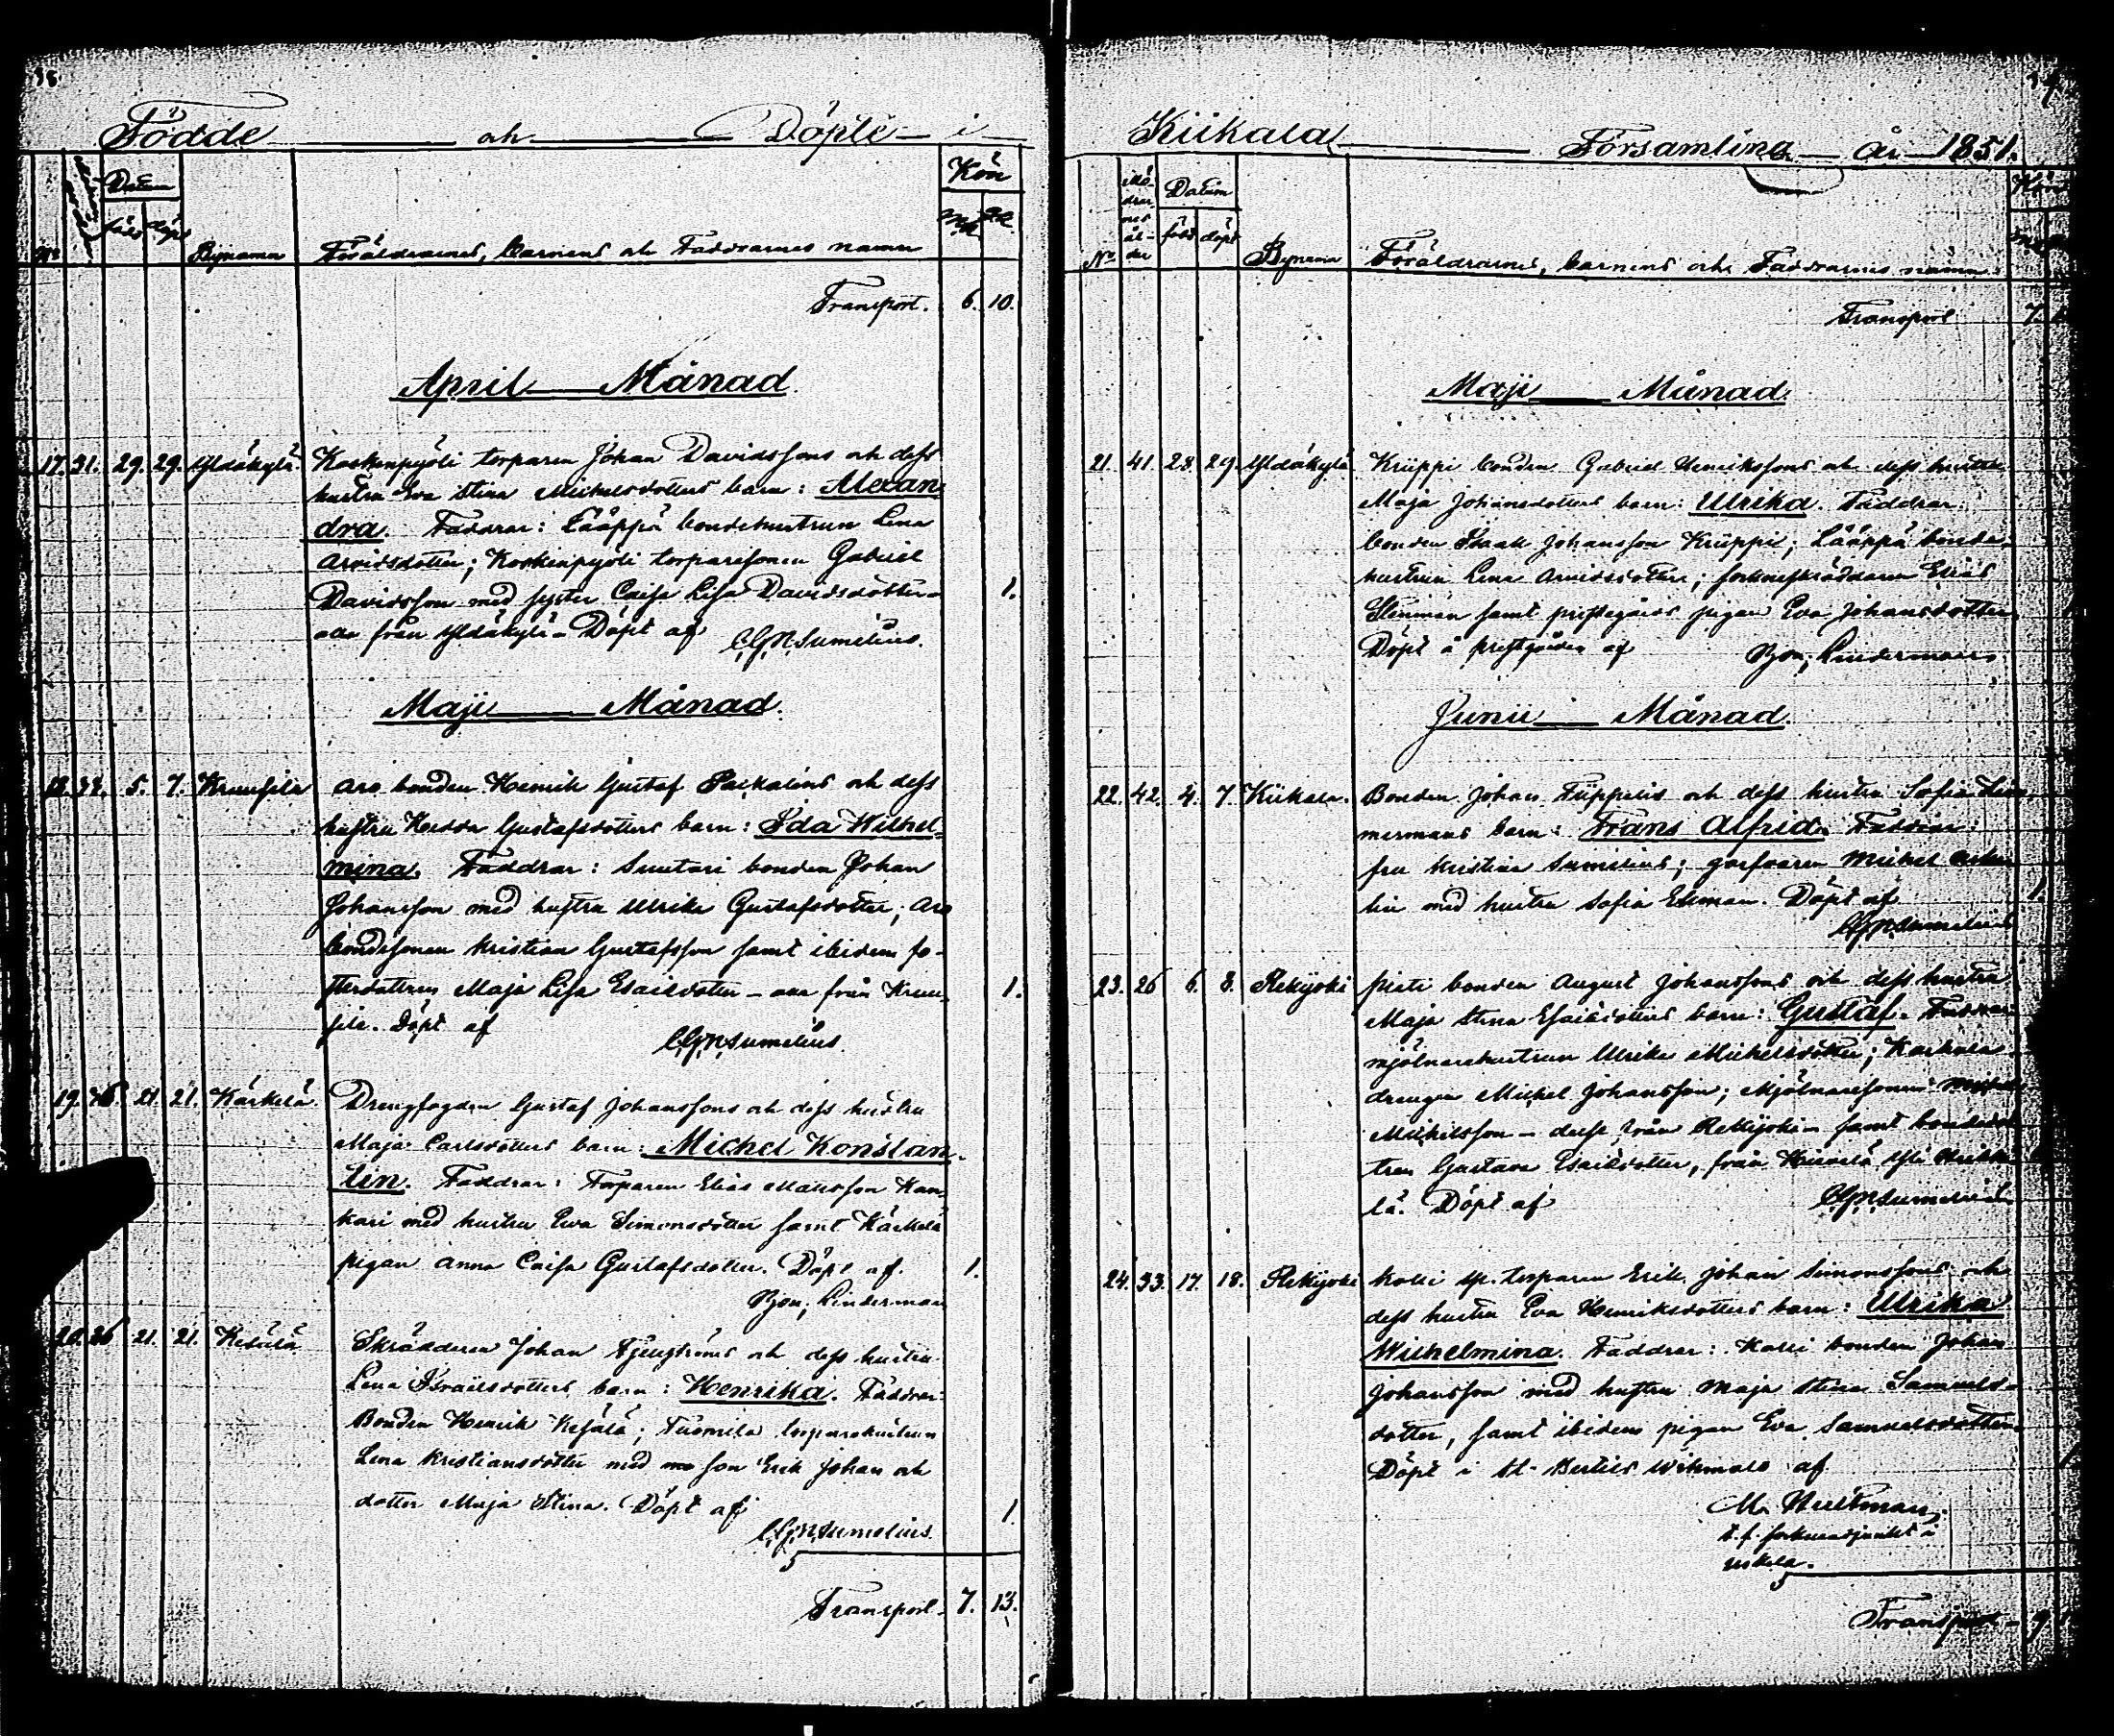 Födde och Döpte i
Datum
född döpt
Kön
No Bynamn Föräldrarnes, barnens och Faddrarnes namn
Transport. 6. 10.
April Månad.
17. 31. 29. 29. Yldäkylä. Koskenpyöli torparen Johan Davidssons och dess
hustru Eva Stina Michelsdotters barn: Alexan
dra. Faddrar: Lääppä bondehustrun Lena
Arvidsdotter; Koskenpyöli torparesonen Gabriel
Davidsson med syster Caisa Lisa Davidsdotter – 1.
alla från Yldäkylä – Döpt af C.G.N. Sumelius.
Maji Månad.
18. 5. 7. Kruusila Aro bonden Henrik Gustaf Packalens och dess
hustru Hedda Gustafsdotters barn: Ida Wilhel-
mina. Faddrar: Suutari bonden Johan
Johansson med hustru Ulrika Gustafsdotter; Aro
bondesonen Kristian Gustafsson samt ibidem fo-
sterdottren Maja Lisa Esaiedotter – alla från Kruu- 1.
sila. Döpt af
C.G.N. Sumelius.
19. 46 21. 21. Kärkelä. Drengfogden Gustaf Johanssons och dess hustru
Maja Carlsdotters barn: Michel Konstan-
tin. Faddrar: Torparen Elias Mattsson Kan-
kari med hustru Eva Simonsdotter samt Kärkelä
pigan Anna Caisa Gustafsdotter. Döpt af. 1.
Bjon; Linderman
20. 26 21. 21. Kesälä Skräddaren Johan Ljungströms och dess hustru
Lena Israelsdotters barn: Henrika. Faddrar:
Bonden Henrik Kesälä; Tuomila torparehustrun
Lena Kristiansdotter med son Erik Johan och
dotter Maja Stina. Döpt af 1
C.G.N. Sumelius.
Transport 7. 13.
Kiikala Församling år 1851.
Mö-
drar-
nes
ål-
der
Datum
född döpt
No Bynamn Föräldrarnes, barnens och Faddrarnes namn.
Transport 7.
Maji Månad.
21. 41. 28. 29. Yldäkylä Kriippi bonden Gabriel Henrikssons och dess hustru
Maja Johansdotters barn: Ulrika. Faddrar:
bonden Isaak Johansson Kriippi; Lääppä bonde-
hustrun Lena Arvidsdotter; sockneskräddaren Elias
Stenman samt prestegårds pigan Eva Johansdotter
Döpt å prestgården af Bjon; Linderman.
Junii Månad.
22. 42. 4. 7. Kiikala. Bonden Johan Fiippelis och dess hustru Sofia Tim
mermans barn: Frans Alfrid. Faddrar:
fru Kristina Sumelius; garfvaren Michel
lin med hustru Sofia Ekman. Döpt af 1.
C.G.N. Sumelius
23. 26 6. 8. Rekijoki Pieti bonden August Johanssons och dess hustru
Maja Stina Esaiedotters barn: Gustaf. Faddrar:
mjölnarehustrun Ulrika Michelsdotter; Karkola
drengen Michel Johansson; Mjölnaresonen Michel
Michelsson – desse från Rekijoki – samt bondedot
tren Gustava Esaiedotter, från
lä. Döpt af C.G.N. Sumelius
24. 33. 17. 18. Rekijoki Kolli sp. torparen Erik Johan Simonssons och
dess hustru Eva Henriksdotters barn: Ulrika
Wilhelmina. Faddrar: Kolli bonden Johan
Johansson med hustru Maja Stina Samuels-
dotter, samt ibidem pigan Eva Samuelsdotter.
Döpt i St. Bertils Wihmalo af
M. Hultman.
t.f. sockneadjunkt i
Uskela.
Transport 9